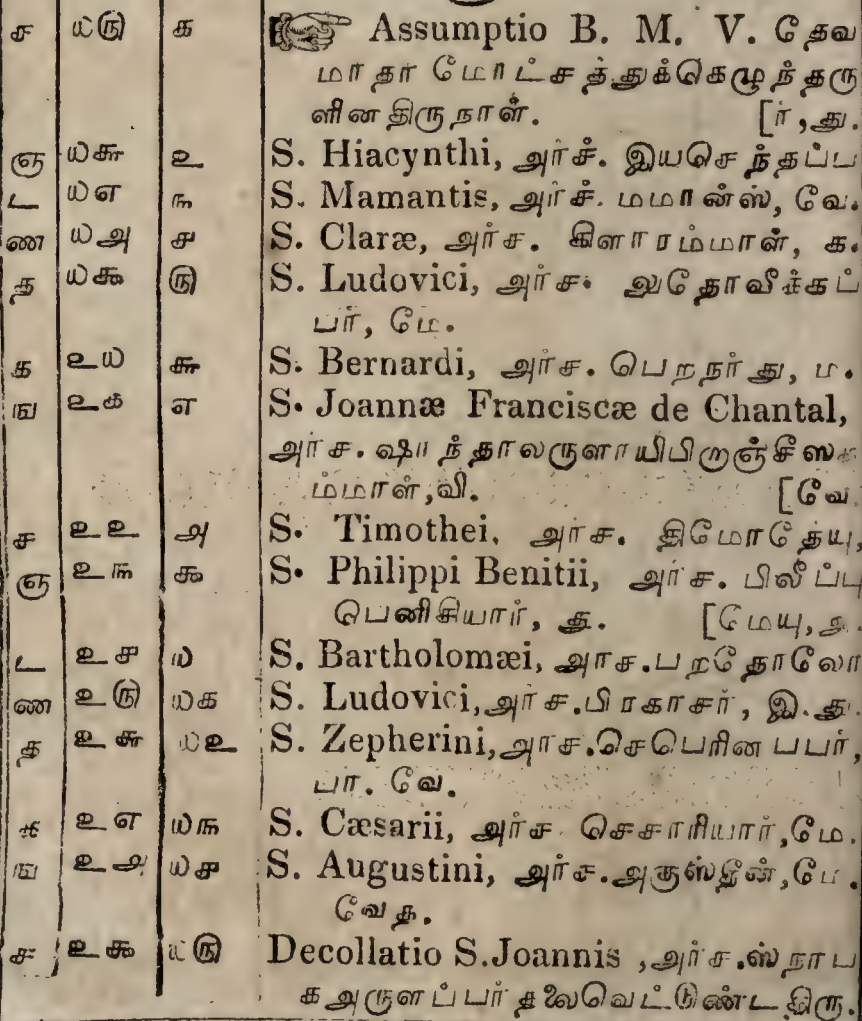 ச ௰௫ க ☞ Assumptio B. M. V. தேவ
மாதா மோட்சத்துக்கெழுந்தரு
ளின திருநாள். [ர்,து.
ஞ ௰௬ ௨ S. Hiacynthi, அர்ச். இயசெந்தப்ப
ட ௰௭ ௩ S. Mamantis, அர்ச். மமான்ஸ், வே.
ண ௰௮ ௪ S. Claræ, அர்ச. கிளாரம்மாள், க.
த ௰௯ ௫ S. Ludovici, அர்ச. லுதோவீக்கப்
பர், மே.
க ௨௰ ௬ S. Bernardi, அர்ச. பெறநர்து, ம.
ங ௨௧ ௭ S. Joannæ Franciscæ de Chantal,
அர்ச. ஷாந்தாலருளாயிபிறஞ்சீஸக
ம்மாள்,வி. [வே.
ச ௨௨ ௮ S. Timothei, அர்ச. திமோதேயு,
ஞ ௨௩ ௯ S. Philippi Benitii, அர்ச. பிலீப்பு
பெனிசியார், து. [மேயு,அ.
ட ௨௪ ௰ S. Bartholomæi, அாச.பறதோலோ
ண ௨௫ ௰௧ S. Ludovici,அர்ச.பிரகாசர், இ.து.
த ௨௬ ௰௨ S. Zepherini,அாச.செபெரின பபர்,
பா. வே.
க ௨௭ ௰௩ S. Cæsarii, அர்ச செசாரியார்,மே.
ங ௨௮ ௰௪ S. Augustini, அர்ச.அகுஸ்தீன்,மே.
வேத.
ச ௨௯ ௰௫ Decollatio S.Joannis ,அர்ச.ஸ்நாப
க அருளப்பர் தலைவெட்டுண்ட திரு.